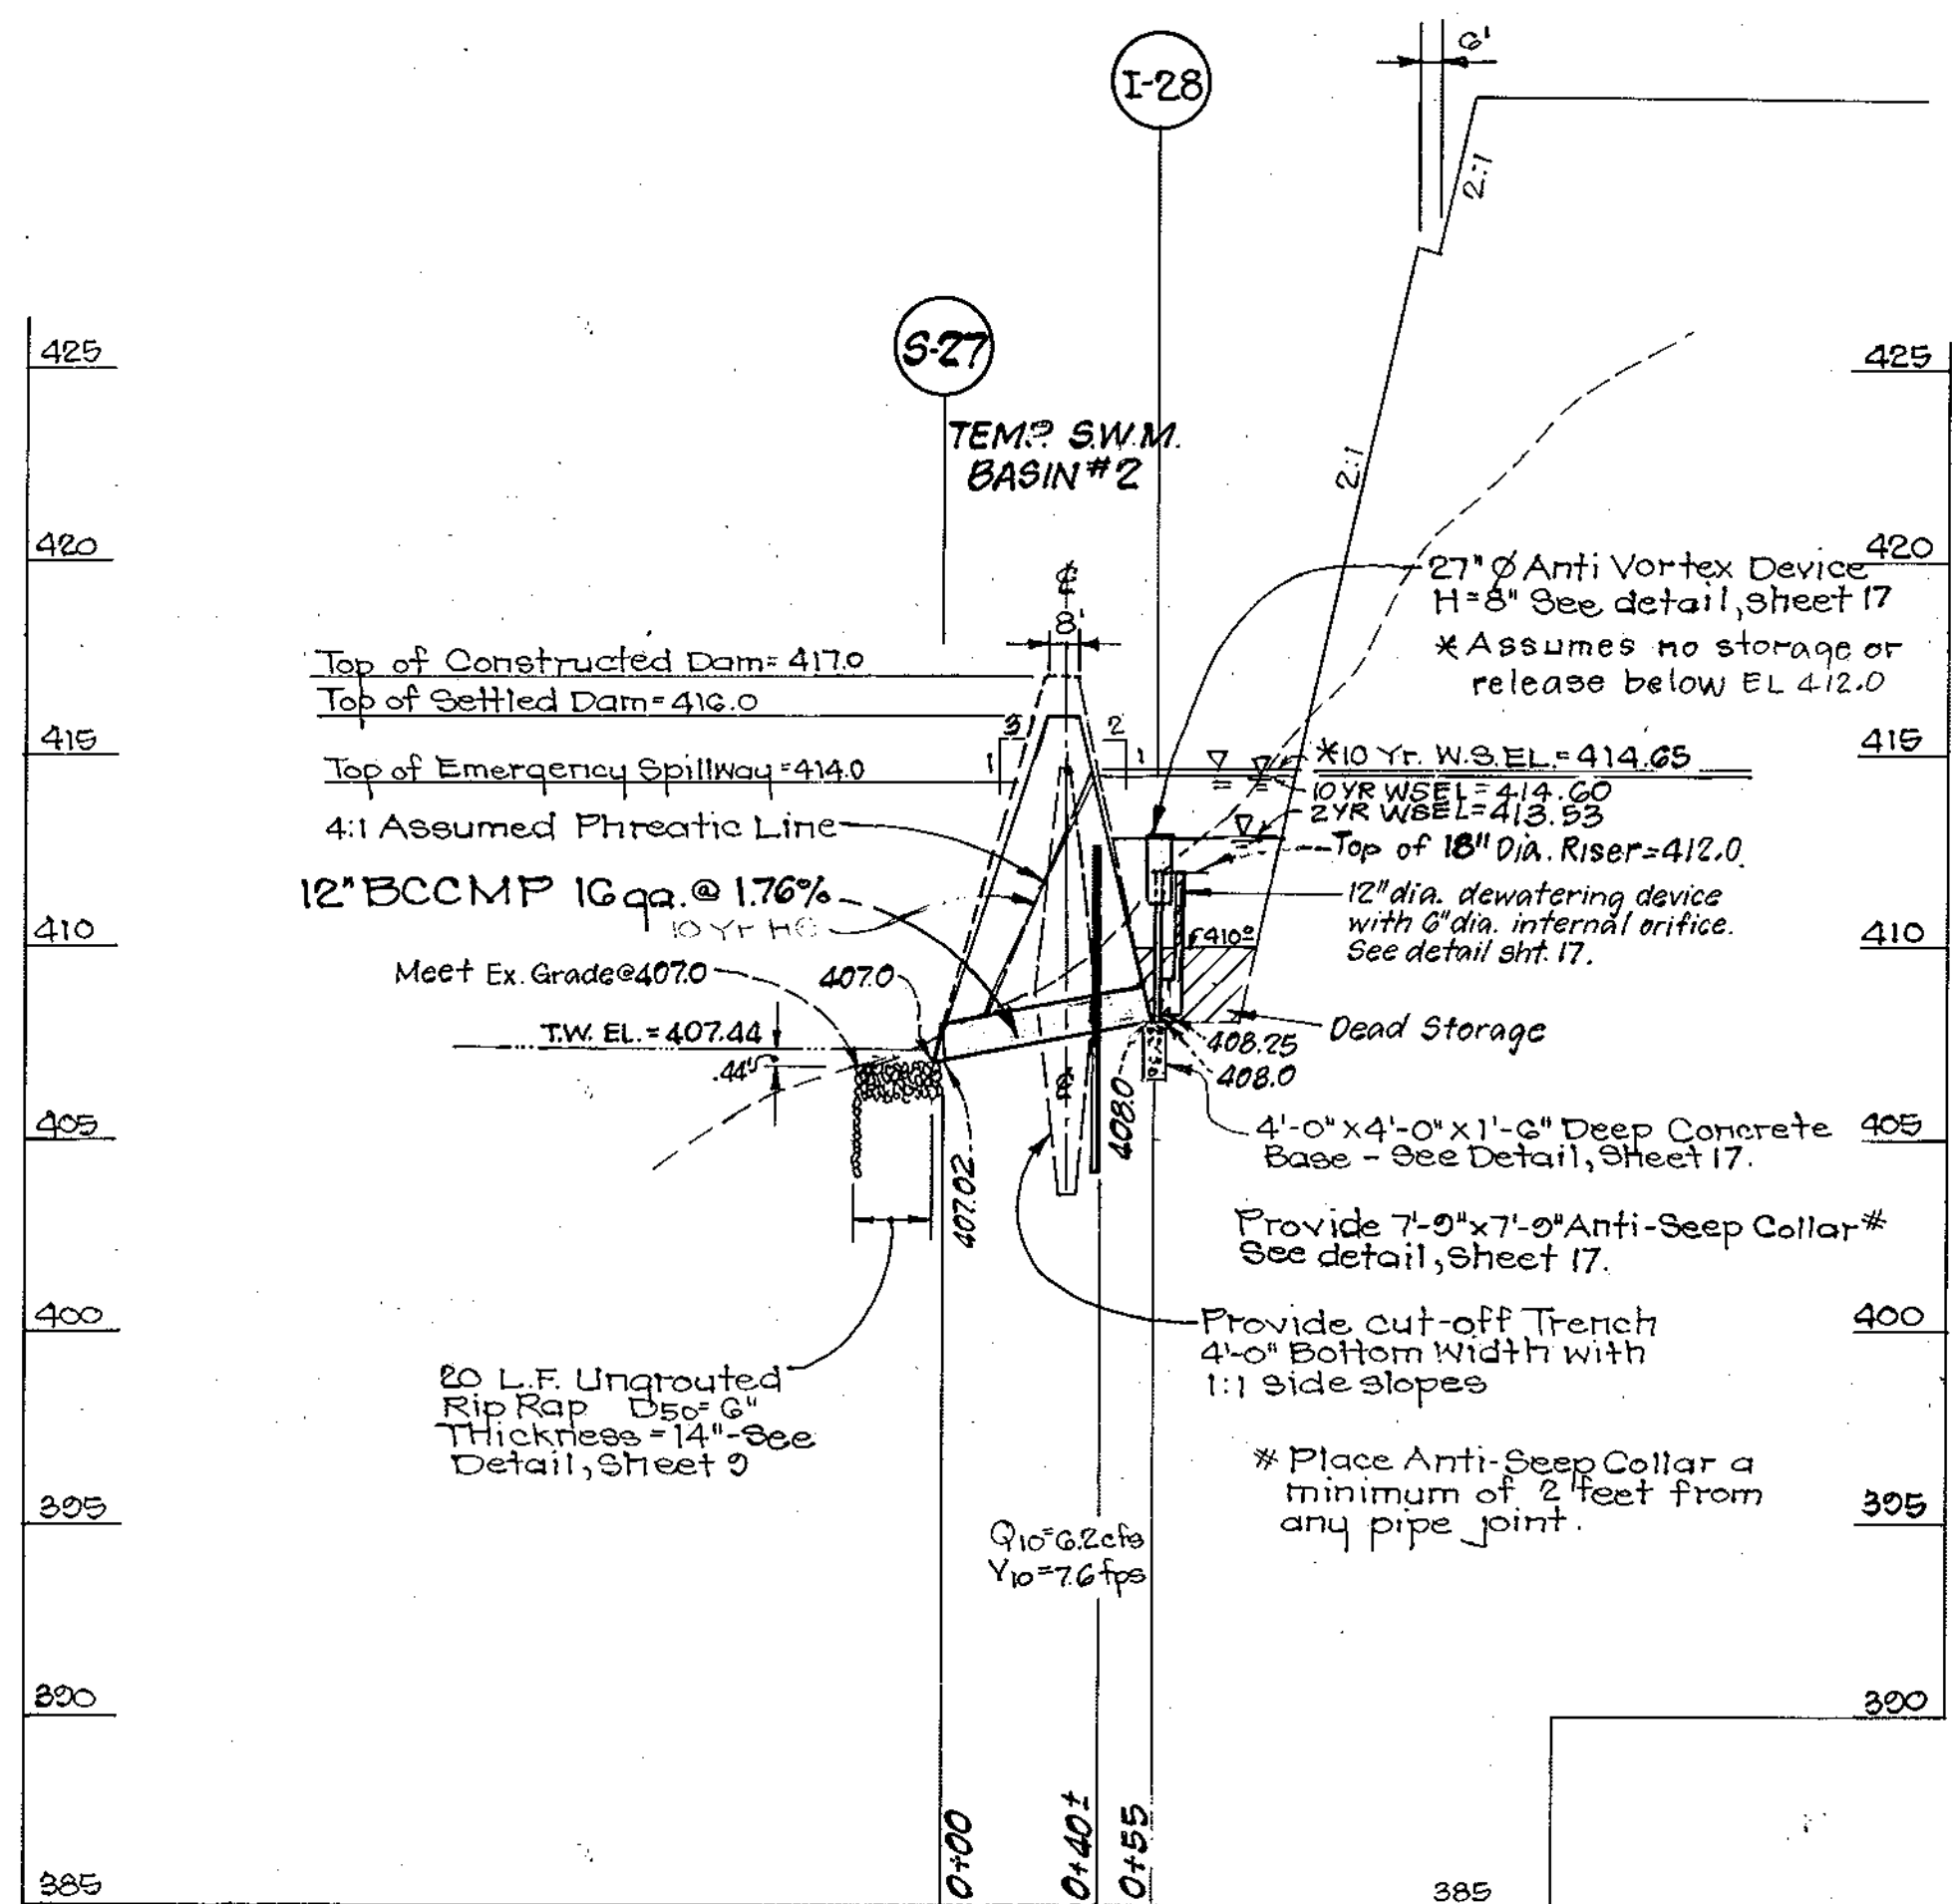 6'
I-28
2:1
S-27
425
425
TEMP. S.W.M.
BASIN #2
2:1
420
420
27" Ø Anti Vortex Device
H=8" See detail, sheet 17
* Assumes no storage or
release below EL 412.0
℄
8'
Top of Constructed Dam= 417.0
Top of Settled Dam= 416.0
3
1
2
1
415
415
Top of Emergency Spillway =414.0
*10 Yr. W.S.EL.= 414.65
10 YR WSEL=414.60
2 YR WSEL=413.53
4:1 Assumed Phreatic Line
Top of 18" Dia. Riser=412.0
12" BCCMP 16 ga. @ 1.76%
10 Yr HG
12" dia. dewatering device
with 6" dia. internal orifice.
See detail sht. 17.
410
410
410º
Meet Ex. Grade@407.0
407.0
T.W. EL. = 407.44
.44'
Dead Storage
408.25
408.0
408.0
407.02
405
405
4'-0" x 4'-0" x 1'-6" Deep Concrete
Base - See Detail, Sheet 17.
Provide 7'-9" x 7'-9" Anti-Seep Collar #
See detail, Sheet 17.
400
400
Provide cut-off Trench
4'-0" Bottom Width with
1:1 side slopes
20 L.F. Ungrouted
Rip Rap D50= 6"
THickness = 14" - See
Detail, Sheet 9
# Place Anti-Seep Collar a
minimum of 2 feet from
any pipe joint.
395
395
Q10=6.2cfs
V10=7.6 fps
390
390
0+00
0+40±
0+55
385
385